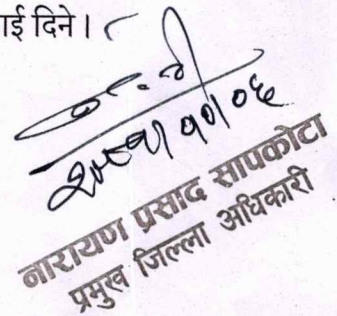 ाई दिने।
नारायण प्रसाद सापकोटा
प्रमुख जिल्ला अधिकारी